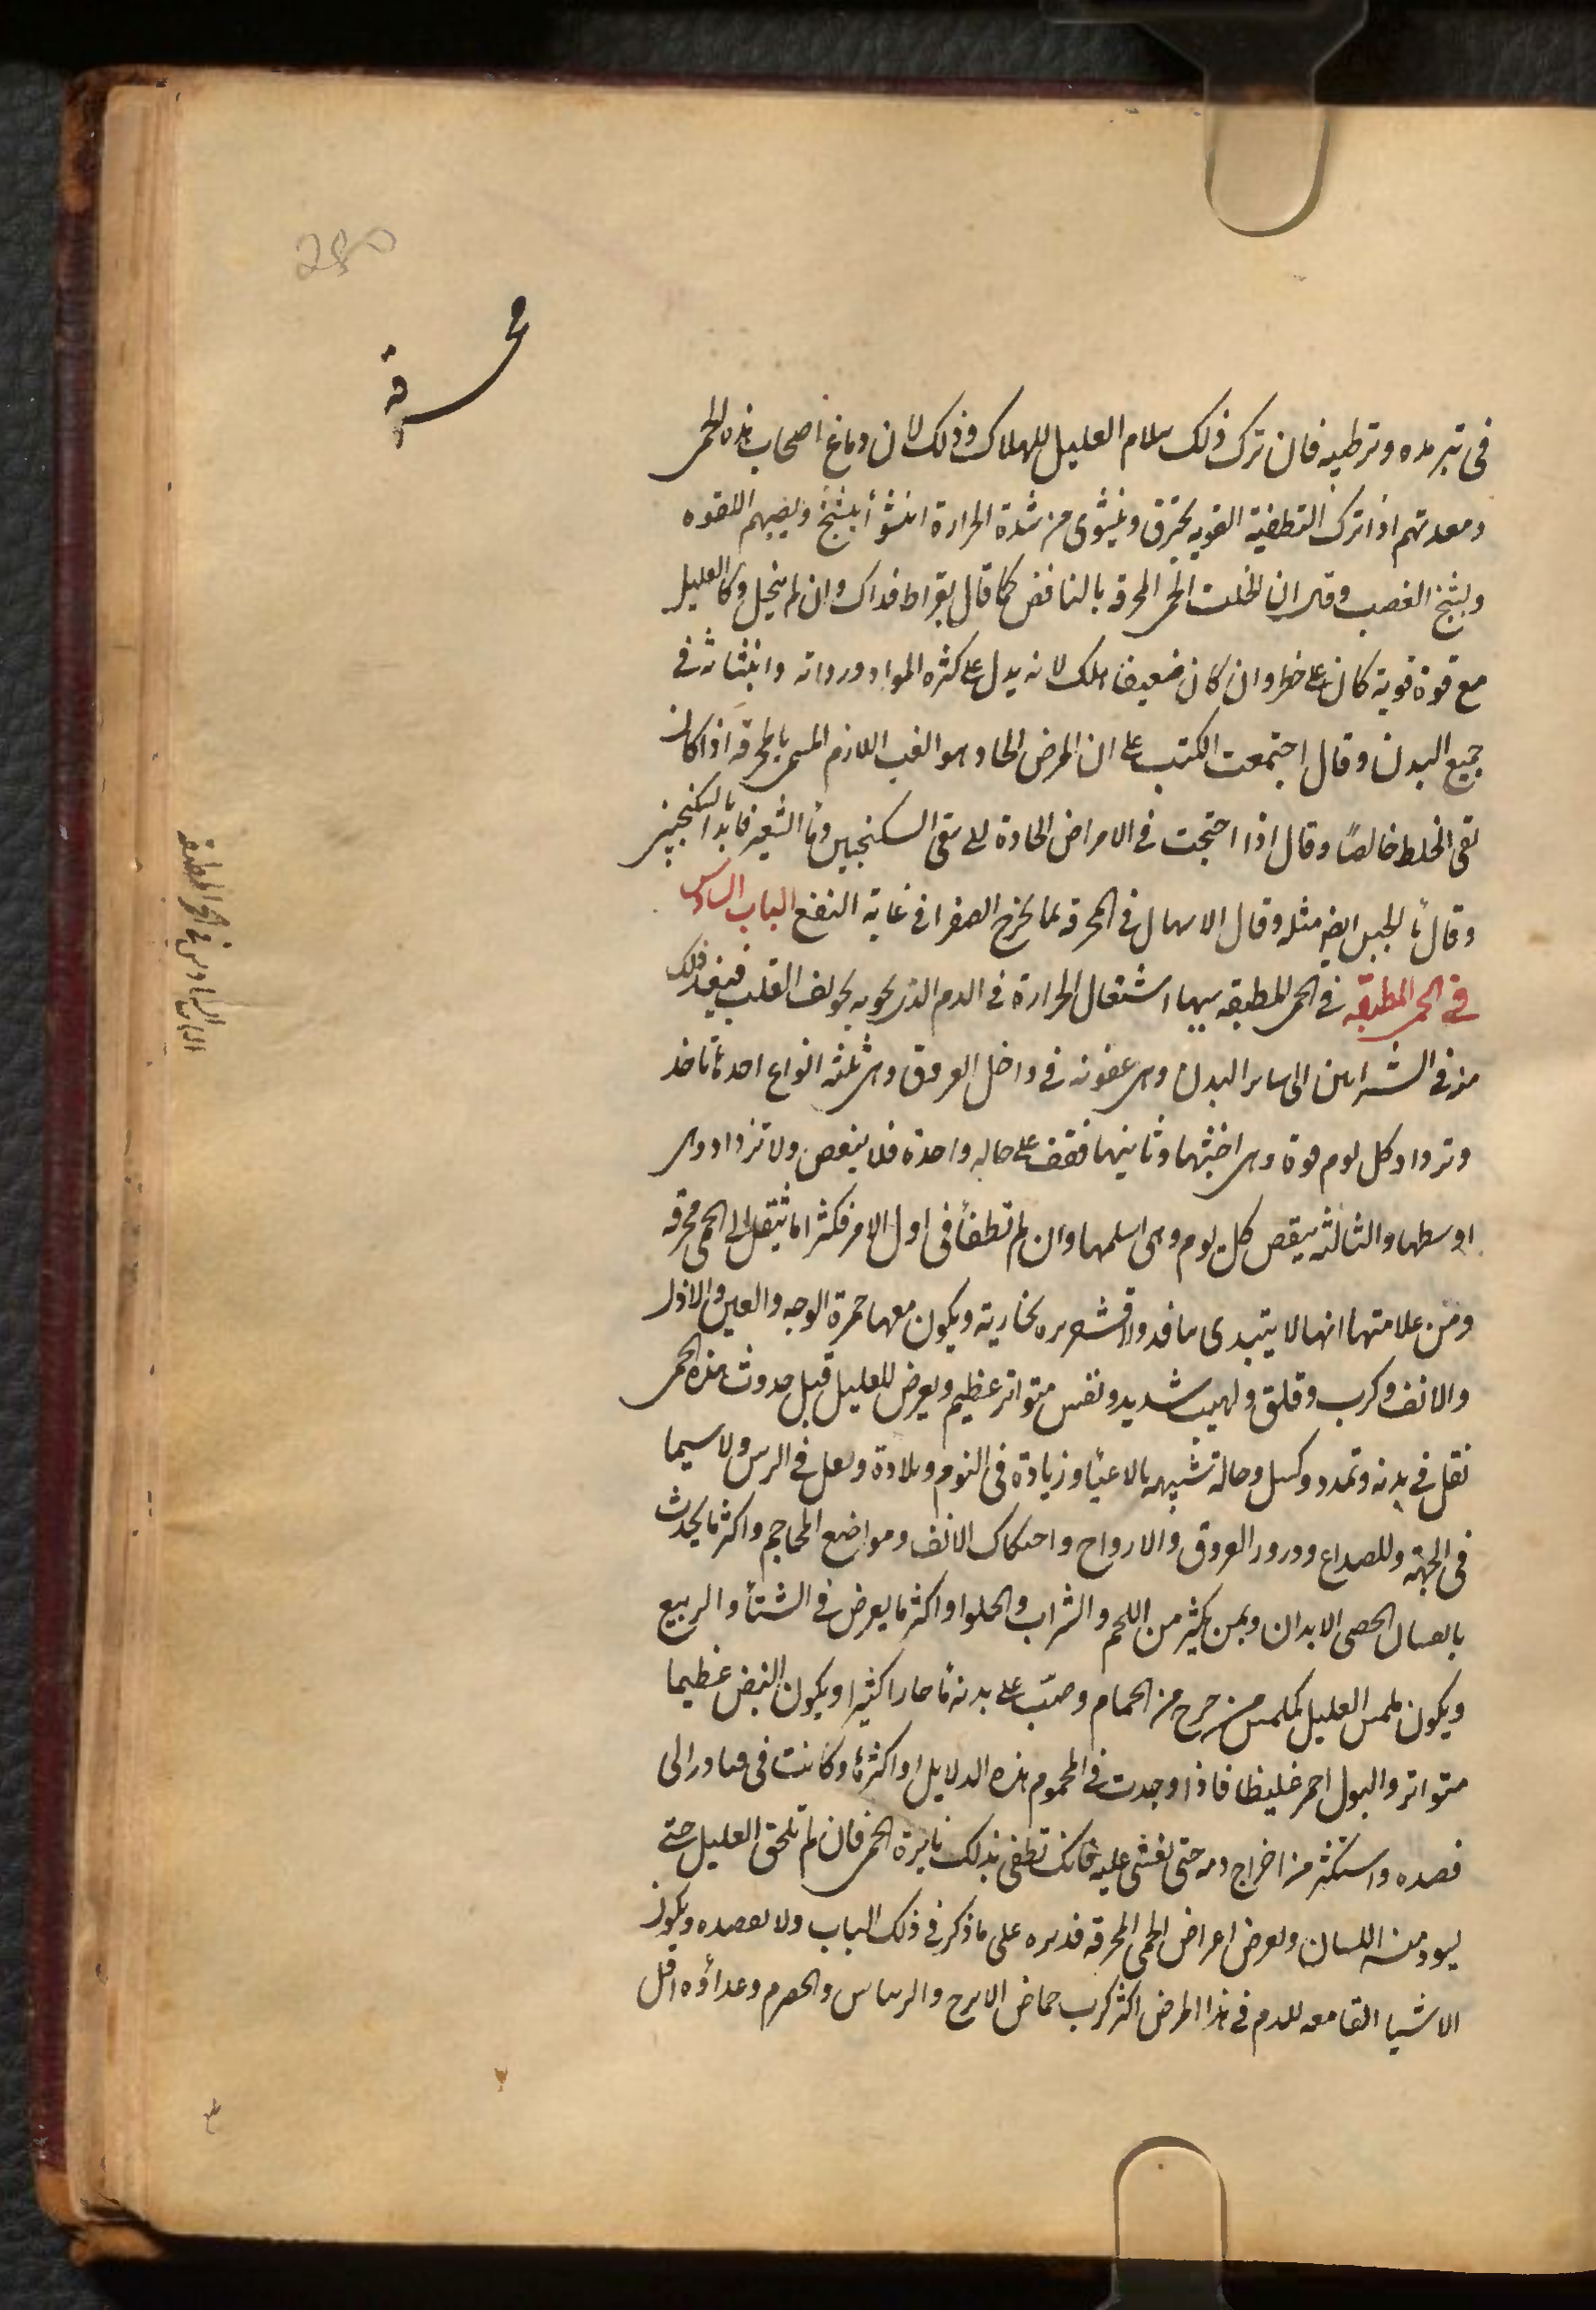 280
محرقة
فى تبريده وترطيبه فان ترك ذلك سلام العليل للهلاك وذلك لان دماغ اصحاب هذه الحمى
ومعدتهم اذا ترك التطفية القويه يحترق وينشوى من شدة الحرارة انشوأ يتشنج ويصيبهم اللقوه
ويشنج العصب وقال ان انحلت الحمى المحرقة بالنافض كما قال بقراط فذاك وان لم ينحل وكا العليل
مع قوة قوية كان على خطر وان كان ضعيفا هلك لانه يدل على كثره المواد ورداته وانبثاثه في
جميع البدن وقال اجتمعت الكتب على ان المرض الحاد هو الغب اللازم المسمى بالمحرقه اذا كان
نقى الخلط خالصًا وقال اذا احتجت في الامراض الحادة الى سقى السكنجبين وما الشعير فابدا بالسكنجبين
وقال ما الجبن ايضه مثله وقال الاسهال في المحرقه لما يخرج الصفرا في غاية النفع الباب السادس
في الحمى المطبقه في الحمى المطبقه سببها اشتعال الحرارة في الدم الذى يحويه تجويف القلب فينفذ ذلك
منه في الشراىىن الى ساىر البدن وهى عفونه في داخل العروق وهى ثلثه انواع احدها تاخذ
وتزداد كل يوم قوة وهى اخبثها وثانيها فتقف على حاله واحدة فلا ينقص ولا تزداد وهى
اوسطها والثالثه ينقص كل يوم وهى اسلمها وان لم تطفأ فى اول الامر فكثيرا ما ينتقل الى الحمى محرقه
ومن علامتها انها لا يبتدى بنافض ولا قشعريره بخاريه ويكون معها حمرة الوجه والعين والاذن
والانف وكرب وقلق ولهيب شديد ونفس متواتر عظيم ويعرض للعليل قبل حدوث هذه الحمى
ثقل في بدنه وتمدد وكسل وحالة شبيهه بالاعيأ وزيادة فى النوم وبلادة وثقل في الراس ولا سيما
فى الجبهة وللصداع ودرور العروق والارواح واحتكاك الانف ومواضع المحاجم واكثر ما يحدث
بالصبيان الخصبى الابدان وبمن يكثر من اللحم والشراب والحلوا واكثر ما يعرض في الشتأ والربيع
ويكون ملمس العليل كملمس من خرج من الحمام وصبّ على بدنه ما حارا كثيرا ويكون النبض عظيما
متواتر والبول احمر غليظا فاذا وجدت في المحموم هذه الدلايل او اكثرها وكانت فى فبادر الى
فصده واستكثر من اخراج دمه حتى يغشى عليه فانك تطفى بذلك نايرة الحمى فان لم تلحق العليل حتى
يسود منه اللسان ويعرض اعراض الحمى المحرقه فدبره على ما ذكر في ذلك الباب ولا تفصده ويكون
الاشيا القامعه للدم في هذا المرض اكثر كرب حماض الاترج والريباس والحصرم وغداؤه اقل
الباب السادس في الحمى المطبقه